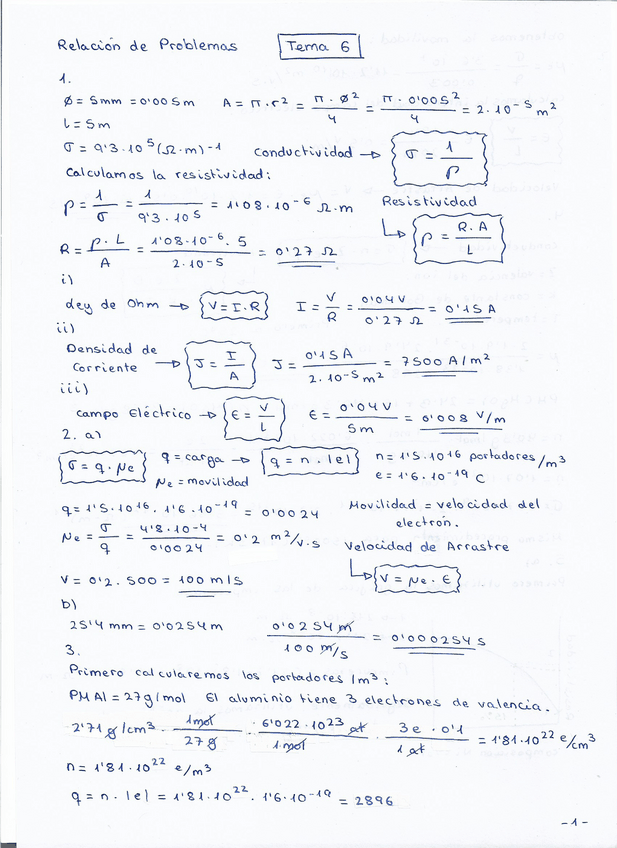 Relación de Problemas Tema 6
1.
Ø = 5mm = 0'005m A = π·r² = π·Ø²/4 = π·0'005²/4 = 2·10⁻⁵ m²
l = 5m
σ = 9'3·10⁵(Ω·m)⁻¹ Conductividad → σ = 1/ρ
Calculamos la resistividad:
ρ = 1/σ = 1/9'3·10⁵ = 1'08·10⁻⁶ Ω·m Resistividad
R = ρ·L/A = 1'08·10⁻⁶·5/2·10⁻⁵ = 0'27 Ω ↳ ρ = R·A/L
i)
Ley de Ohm → V = I·R I = V/R = 0'04V/0'27 Ω = 0'15 A
ii)
Densidad de
Corriente → J = I/A J = 0'15A/2·10⁻⁵m² = 7500 A/m²
iii)
Campo Eléctrico → ε = V/l ε = 0'04V/5m = 0'008 V/m
2. a)
σ = q·μe q = carga → q = n·|e| n = 1'5·10¹⁶ portadores/m³
μe = movilidad e = 1'6·10⁻¹⁹ C
q = 1'5·10¹⁶·1'6·10⁻¹⁹ = 0'0024 Movilidad = velocidad del
electrón.
μe = σ/q = 4'8·10⁻⁴/0'0024 = 0'2 m²/V·s Velocidad de Arrastre
V = 0'2·500 = 100 m/s ↳ V = μe·ε
b)
25'4 mm = 0'0254m 0'0254 m/100 m/s = 0'000254 s
3.
Primero calcularemos los portadores/m³:
PM Al = 27g/mol El aluminio tiene 3 electrones de valencia.
2'71 g/cm³ · 1mol/27 g · 6'022·10²³ at/1 mol · 3e·0'1/1 at = 1'81·10²² e/cm³
n = 1'81·10²² e/m³
q = n·|e| = 1'81·10²²·1'6·10⁻¹⁹ = 2896
-1-